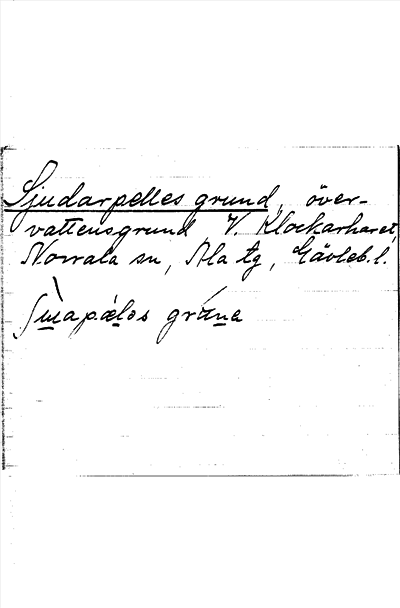 Sjudarpelles grund, över-
vattensgrund V. Klockarharet,
Norrala sn, Ala tg, Gävleb. l.